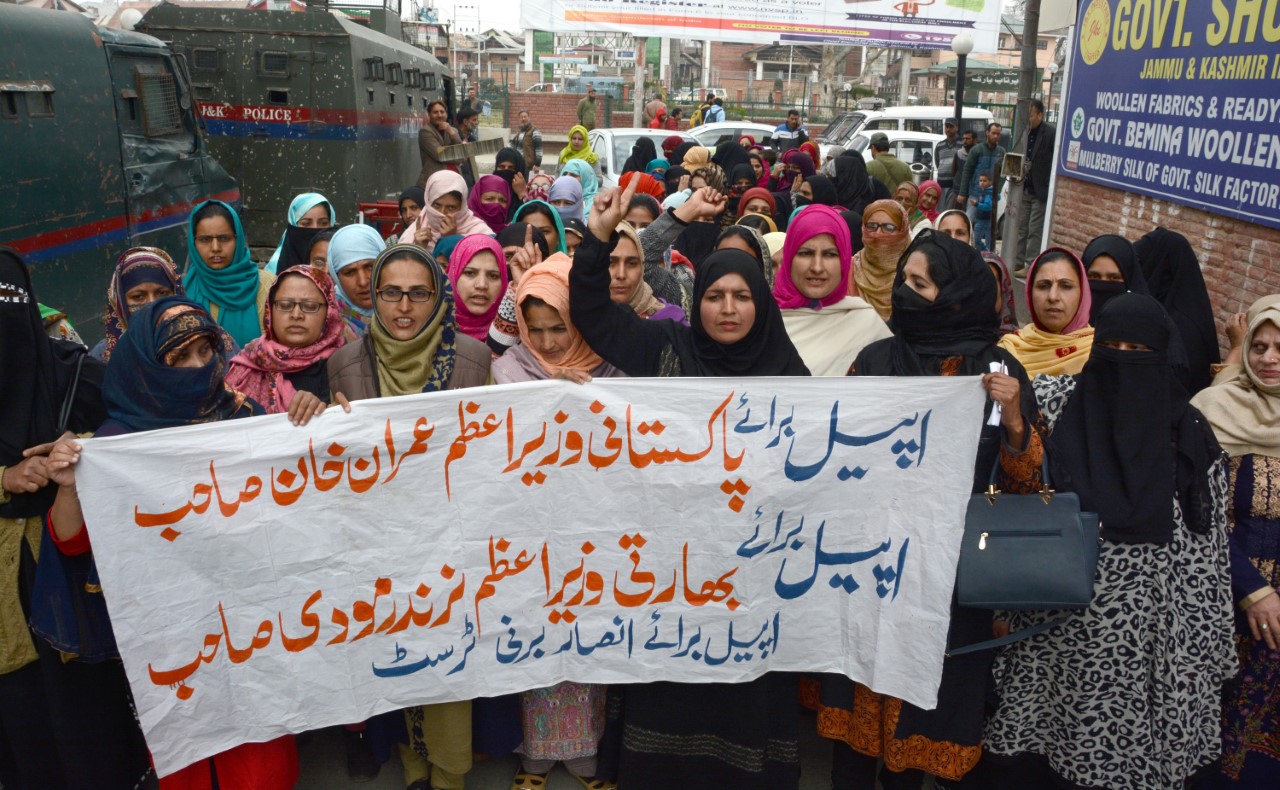 GOVT. SHO
JAMMU & KASHMIR I
WOOLLEN FABRICS & READY
GOVT. BEMINA WOOLLEN
MULBERRY SILK OF GOVT. SILK FACTORY
J&K POLICE
J&K POLICE
اپیل برائے پاکستانی وزیراعظم عمران خان صاحب
اپیل برائے بھارتی وزیراعظم نرندر مودی صاحب
اپیل برائے انصار برنی ٹرسٹ